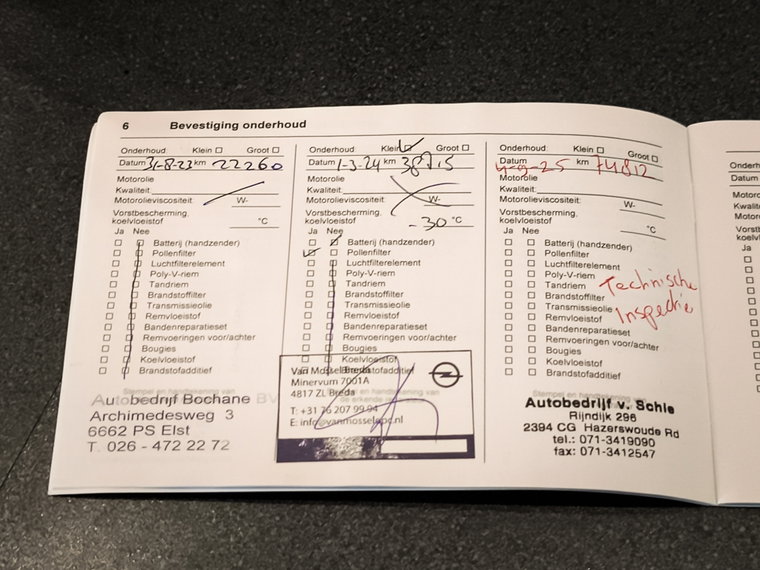 6 Bevestiging onderhoud
Onderhoud: Klein Groot
Datum 31-8-23 km 22260
Motorolie
Kwaliteit
Motorolieviscositeit W-
Vorstbescherming,
koelvloeistof °C
Ja Nee
Batterij (handzender)
Pollenfilter
Luchtfilterelement
Poly-V-riem
Tandriem
Brandstoffilter
Transmissieolie
Remvloeistof
Bandenreparatieset
Remvoeringen voor/achter
Bougies
Koelvloeistof
Brandstofadditief
Autobedrijf Bochane
Archimedesweg 3
6662 PS Elst
T. 026 - 472 22 72
Onderhoud: Klein Groot
Datum 1-3-24 km
Motorolie
Kwaliteit
Motorolieviscositeit W-
Vorstbescherming,
koelvloeistof -30 °C
Ja Nee
Batterij (handzender)
Pollenfilter
Luchtfilterelement
Poly-V-riem
Tandriem
Brandstoffilter
Transmissieolie
Remvloeistof
Bandenreparatieset
Remvoeringen voor/achter
Bougies
Koelvloeistof
Brandstofadditief
Van Mossel Breda
Minervum 7001A
4817 ZL Breda
T: +31 76 207 99 94
Onderhoud: Klein Groot
Datum 4-9-25 km 74812
Motorolie
Kwaliteit
Motorolieviscositeit W-
Vorstbescherming,
koelvloeistof °C
Ja Nee
Batterij (handzender)
Pollenfilter
Luchtfilterelement
Poly-V-riem
Tandriem
Brandstoffilter
Transmissieolie
Remvloeistof
Bandenreparatieset
Remvoeringen voor/achter
Bougies
Koelvloeistof
Brandstofadditief
Technische
Inspectie
Autobedrijf v. Schie
Rijndijk 296
2394 CG Hazerswoude Rd
tel.: 071-3419090
fax: 071-3412547
Datum
Ja